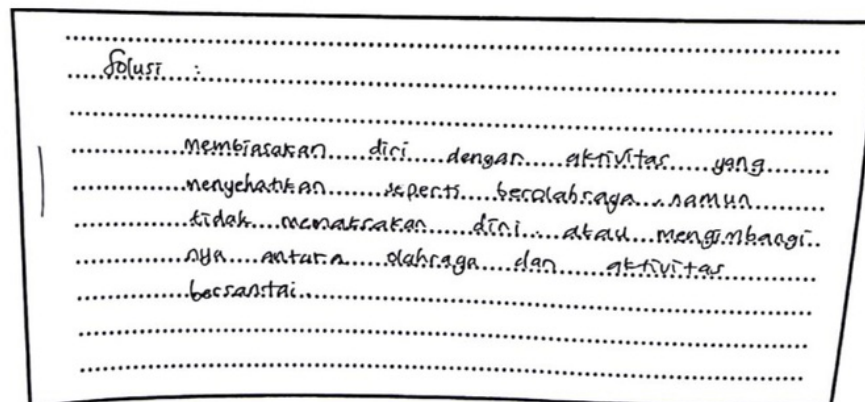 Solusi :
membiasakan diri dengan aktivitas yang
menyehatkan seperti berolahraga. namun
tidak memaksakan diri. atau mengimbangi
nya antara olahraga dan aktivitas
bersantai.